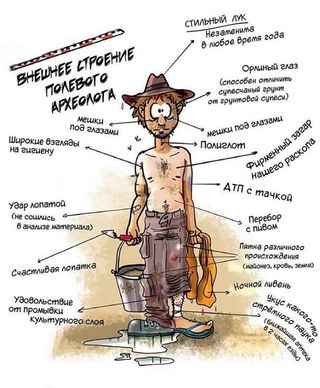 СТИЛЬНЫЙ ЛУК
Незаменита
в любое время года
ВНЕШНЕЕ СТРОЕНИЕ
ПОЛЕВОГО
АРХЕОЛОГА
Орлиный глаз
(способен отличить
супесчаный грунт
от грунтовой супеси)
мешки
под глазами
мешки под глазами
Полиглот
Широкие взгляды
на гигиену
Фирменный загар
нашего раскопа
ДТП с тачкой
Удар лопатой
(не сошлись
в анализе материала)
Перебор
с пивом
Пятна различного
происхождения
(майонез, кровь, земля)
Счастливая лопатка
Ночной ливень
Удовольствие
от промывки
культурного слоя
Укус какого-то
стрёмного паука
(ближайшая аптека
в 2 часах езды)